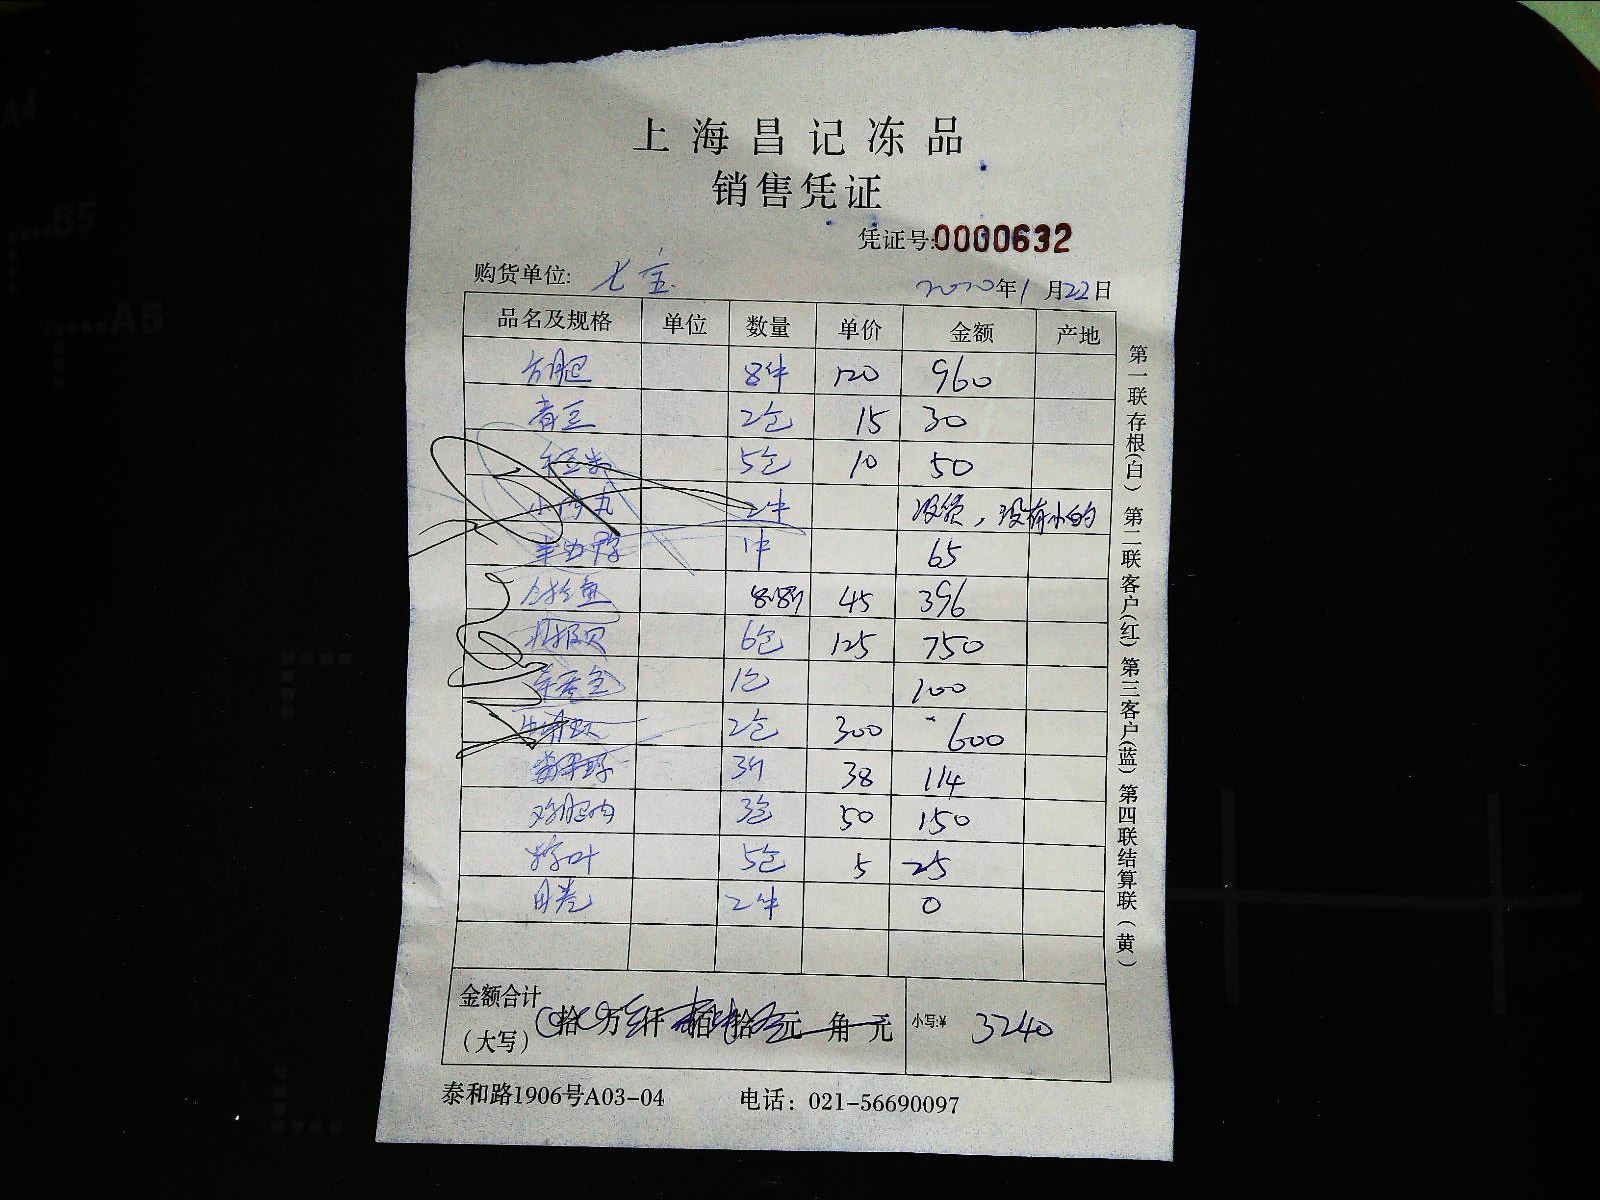 上海昌记冻品
销售凭证
凭证号:0000632
购货单位: 七宝 2020年1月22日
品名及规格 单位 数量 单价 金额 产地
方腿 8件 120 960
青豆 2包 15 30
5包 10 50
2件 没货，没有小的
1件 65
8.8斤 45 396
6包 125 750
1包 100
2包 300 600
3斤 38 114
鸡腿肉 3包 50 150
粽叶 5包 5 25
2件 0
金额合计
(大写) 拾 万 仟 佰 拾 元 角 元 小写:¥ 3240
泰和路1906号A03-04 电话：021-56690097
第一联存根(白) 第二联客户(红) 第三客户(蓝) 第四联结算联(黄)
A4
B5
A5